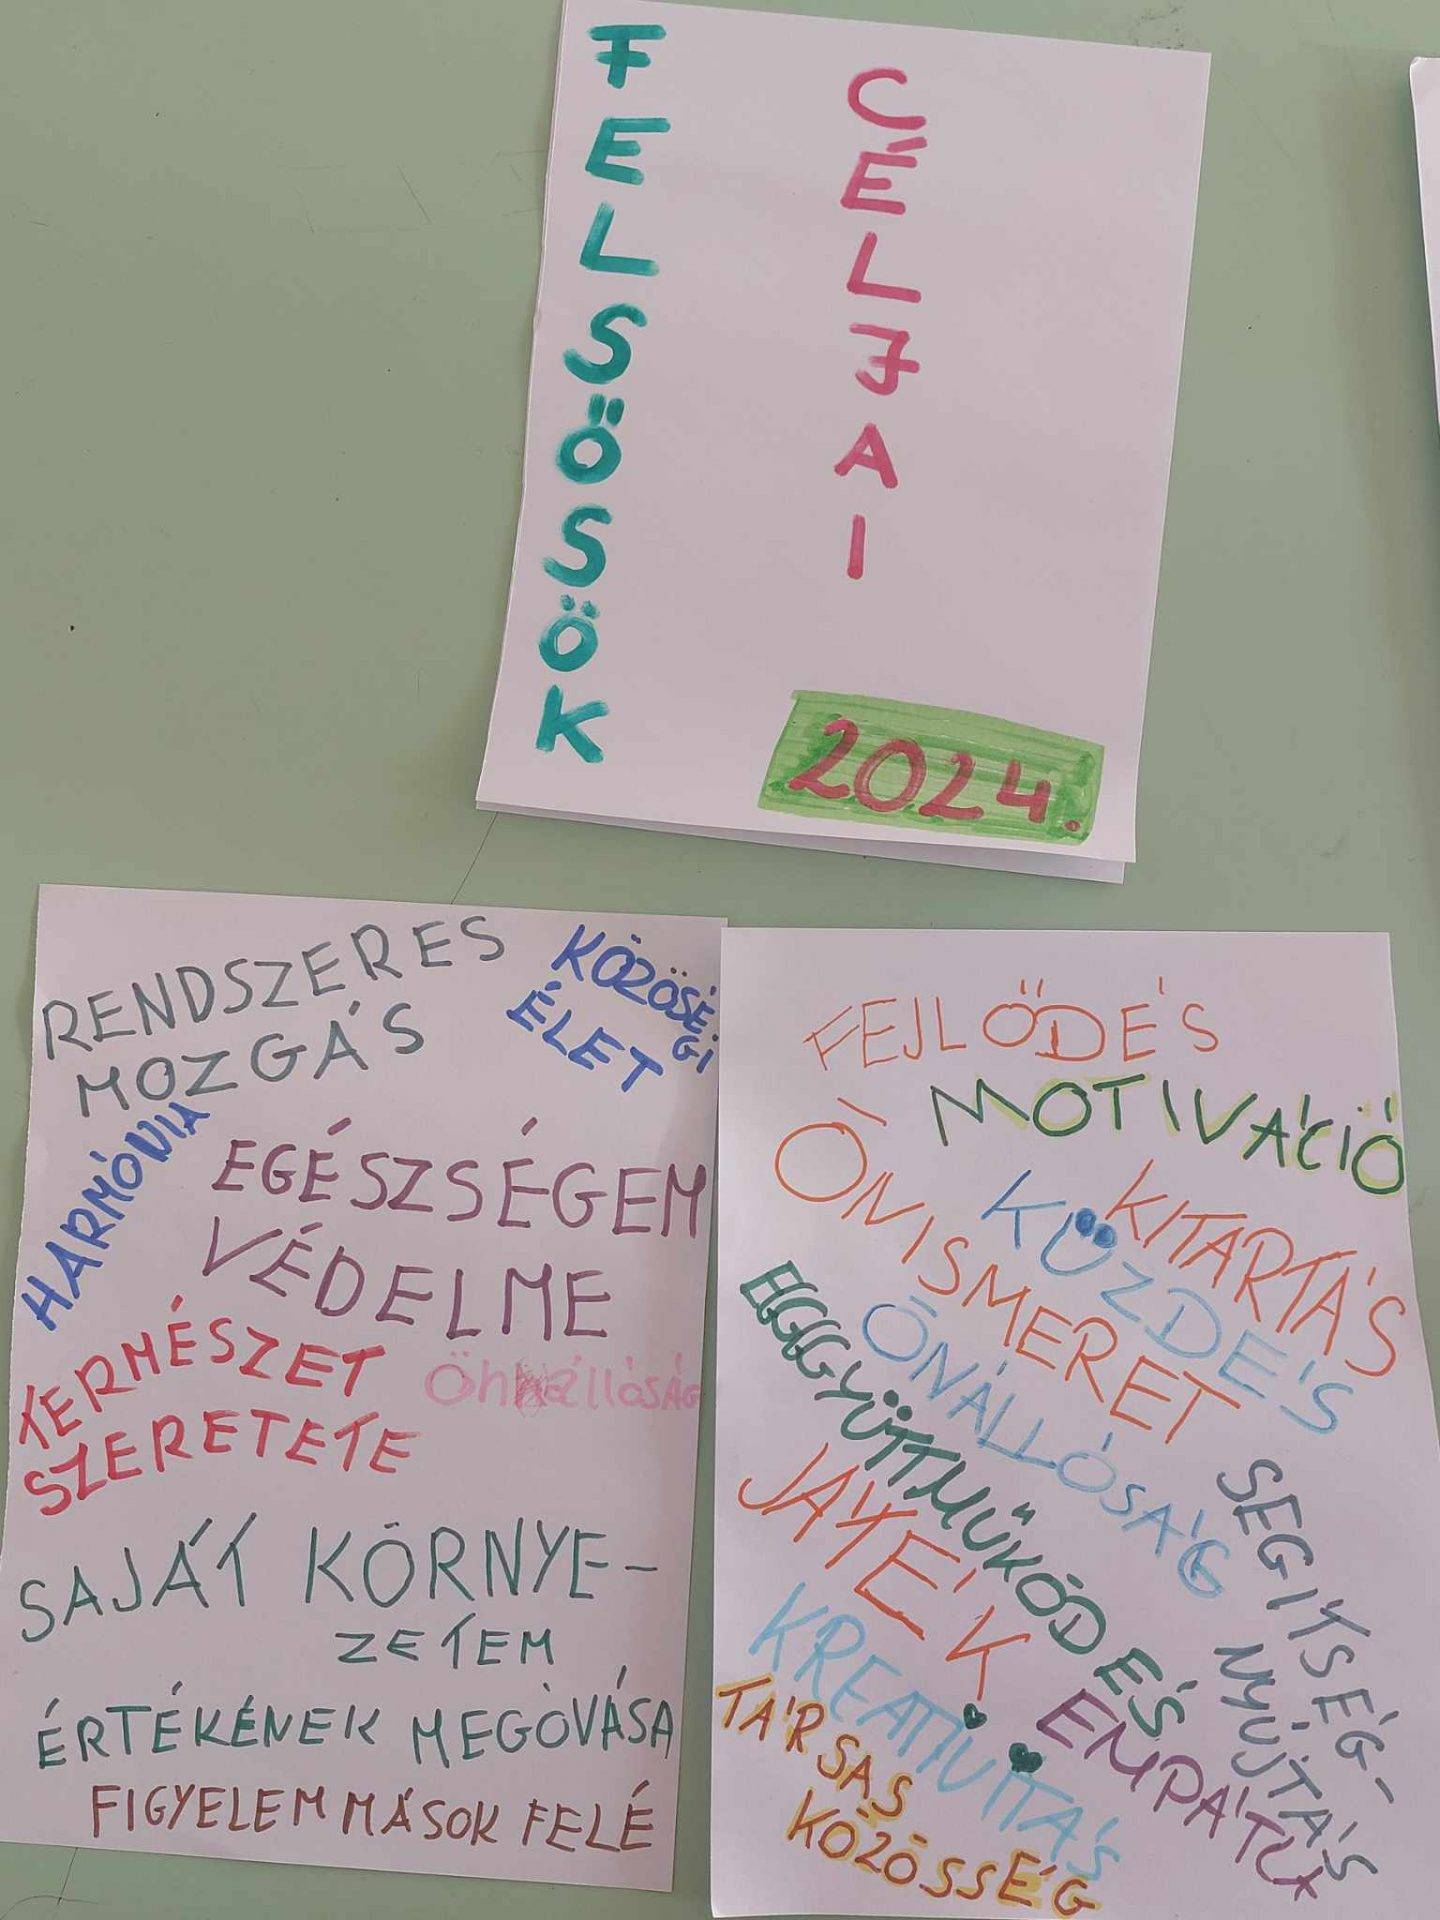 FELSŐSÖK
CÉLJAI
2024.
RENDSZERES
MOZGÁS
KÖZÖSÉGI
ÉLET
HARMÓNIA
EGÉSZSÉGEM
VÉDELME
TERMÉSZET
SZERETETE
SAJÁT KÖRNYE-
ZETEM
ÉRTÉKÉNEK MEGÓVÁSA
FIGYELEM MÁSOK FELÉ
FEJLŐDÉS
MOTIVÁCIÓ
KITARTÁS
KÜZDÉS
ÖNISMERET
ÖNÁLLÓSÁG
EGGYÜTTMŰKÖDÉS
JÁTÉK
SEGÍTSÉG-
NYÚJTÁS
KREATIVITÁS
EMPÁTIA
TÁRSAS
KÖZÖSSÉG